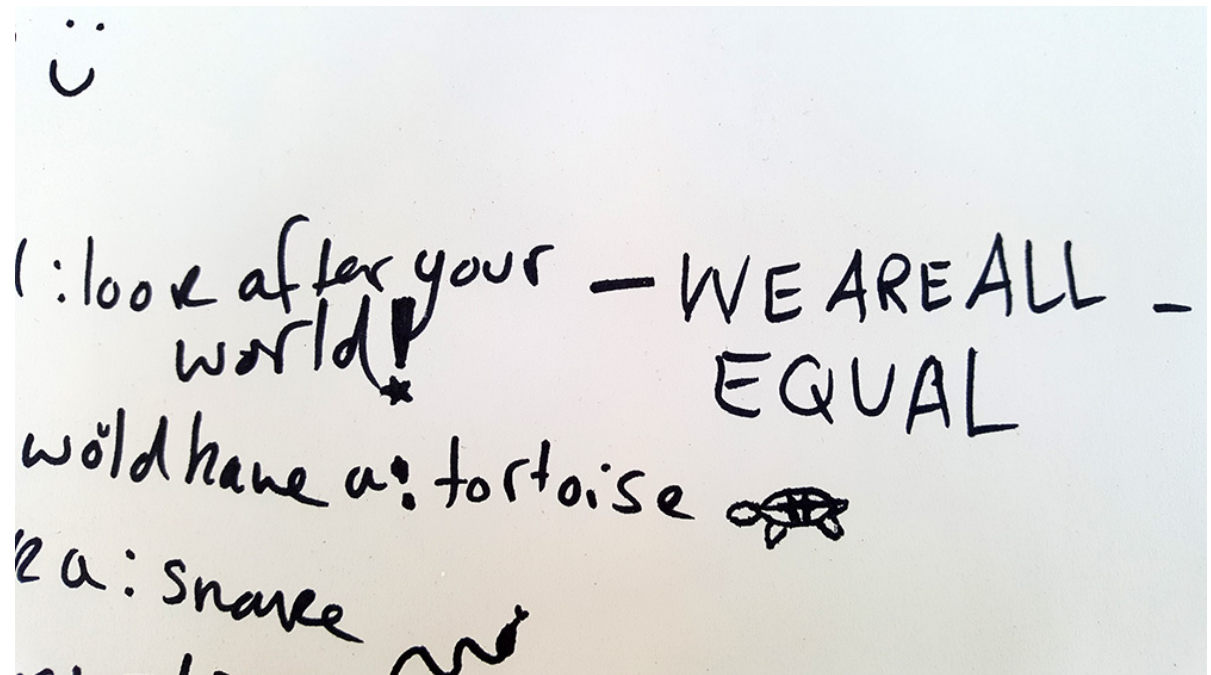 : look after your
world!
- WE ARE ALL -
EQUAL
wold have a: tortoise
a: snake